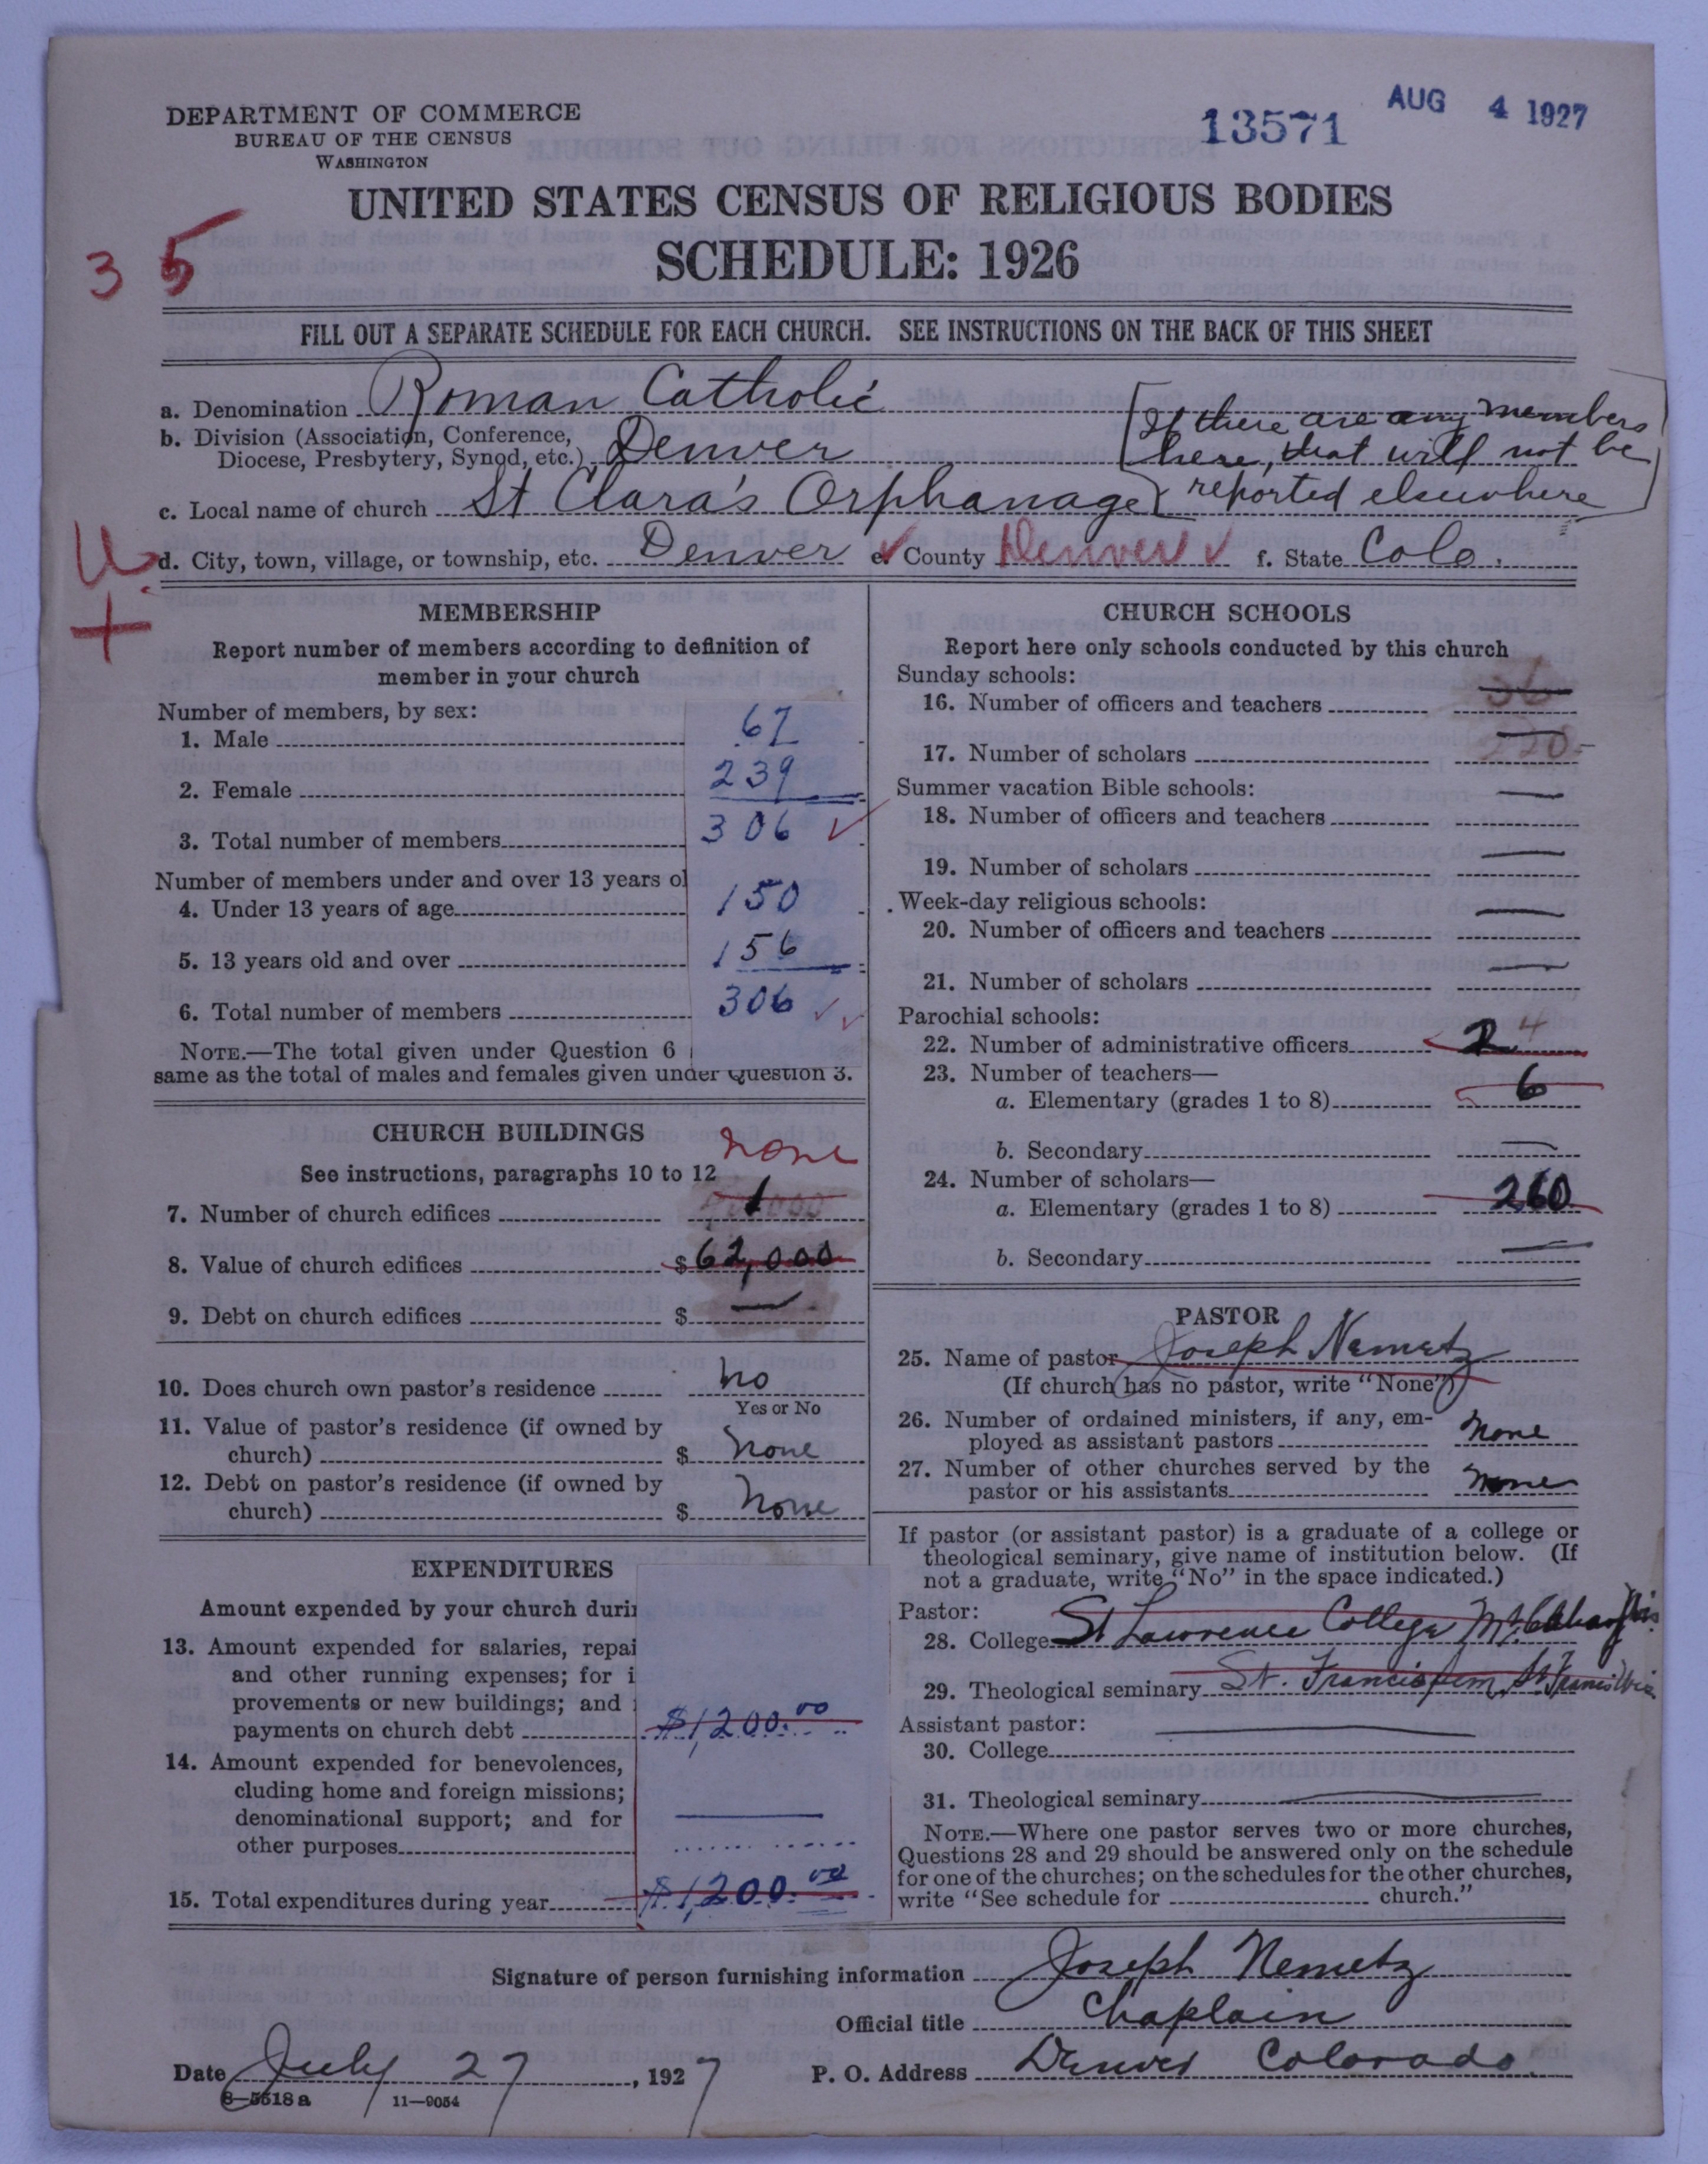 DEPARTMENT OF COMMERCE
BUREAU OF THE CENSUS
WASHINGTON
13571
AUG 4 1927
UNITED STATES CENSUS OF RELIGIOUS BODIES
SCHEDULE: 1926
3 5
FILL OUT A SEPARATE SCHEDULE FOR EACH CHURCH. SEE INSTRUCTIONS ON THE BACK OF THIS SHEET
a. Denomination Roman Catholic
b. Division (Association, Conference,
Diocese, Presbytery, Synod, etc.) Denver
[If there are any members
here, that will not be
reported elsewhere]
c. Local name of church St Clara's Orphanage
d. City, town, village, or township, etc. Denver e. County Denver f. State Colo.
MEMBERSHIP
Report number of members according to definition of
member in your church
Number of members, by sex:
1. Male 67
2. Female 239
3. Total number of members 306
Number of members under and over 13 years ol
4. Under 13 years of age 150
5. 13 years old and over 156
6. Total number of members 306
NOTE.—The total given under Question 6
same as the total of males and females given under Question 3.
CHURCH BUILDINGS
See instructions, paragraphs 10 to 12
none
7. Number of church edifices 1
8. Value of church edifices $ 62,000
9. Debt on church edifices $ —
10. Does church own pastor's residence no
Yes or No
11. Value of pastor's residence (if owned by
church) $ none
12. Debt on pastor's residence (if owned by
church) $ none
EXPENDITURES
Amount expended by your church duri
13. Amount expended for salaries, repai
and other running expenses; for i
provements or new buildings; and
payments on church debt $1,200.00
14. Amount expended for benevolences,
cluding home and foreign missions;
denominational support; and for
other purposes
15. Total expenditures during year $1,200.00
CHURCH SCHOOLS
Report here only schools conducted by this church
Sunday schools:
16. Number of officers and teachers
17. Number of scholars 220
Summer vacation Bible schools:
18. Number of officers and teachers —
19. Number of scholars —
Week-day religious schools:
20. Number of officers and teachers —
21. Number of scholars —
Parochial schools:
22. Number of administrative officers 2 4
23. Number of teachers—
a. Elementary (grades 1 to 8) 6
b. Secondary —
24. Number of scholars—
a. Elementary (grades 1 to 8) 260
b. Secondary —
PASTOR
25. Name of pastor Joseph Nemetz
(If church has no pastor, write "None")
26. Number of ordained ministers, if any, em-
ployed as assistant pastors none
27. Number of other churches served by the
pastor or his assistants none
If pastor (or assistant pastor) is a graduate of a college or
theological seminary, give name of institution below. (If
not a graduate, write "No" in the space indicated.)
Pastor:
28. College St Lawrence College Mt. Calvary Wis.
29. Theological seminary St. Francis Sem, St Francis Wis
Assistant pastor:
30. College
31. Theological seminary
NOTE.—Where one pastor serves two or more churches,
Questions 28 and 29 should be answered only on the schedule
for one of the churches; on the schedules for the other churches,
write "See schedule for church."
Signature of person furnishing information Joseph Nemetz
Official title Chaplain
Date July 27, 1927
P. O. Address Denver Colorado
8—5518 a 11—9054